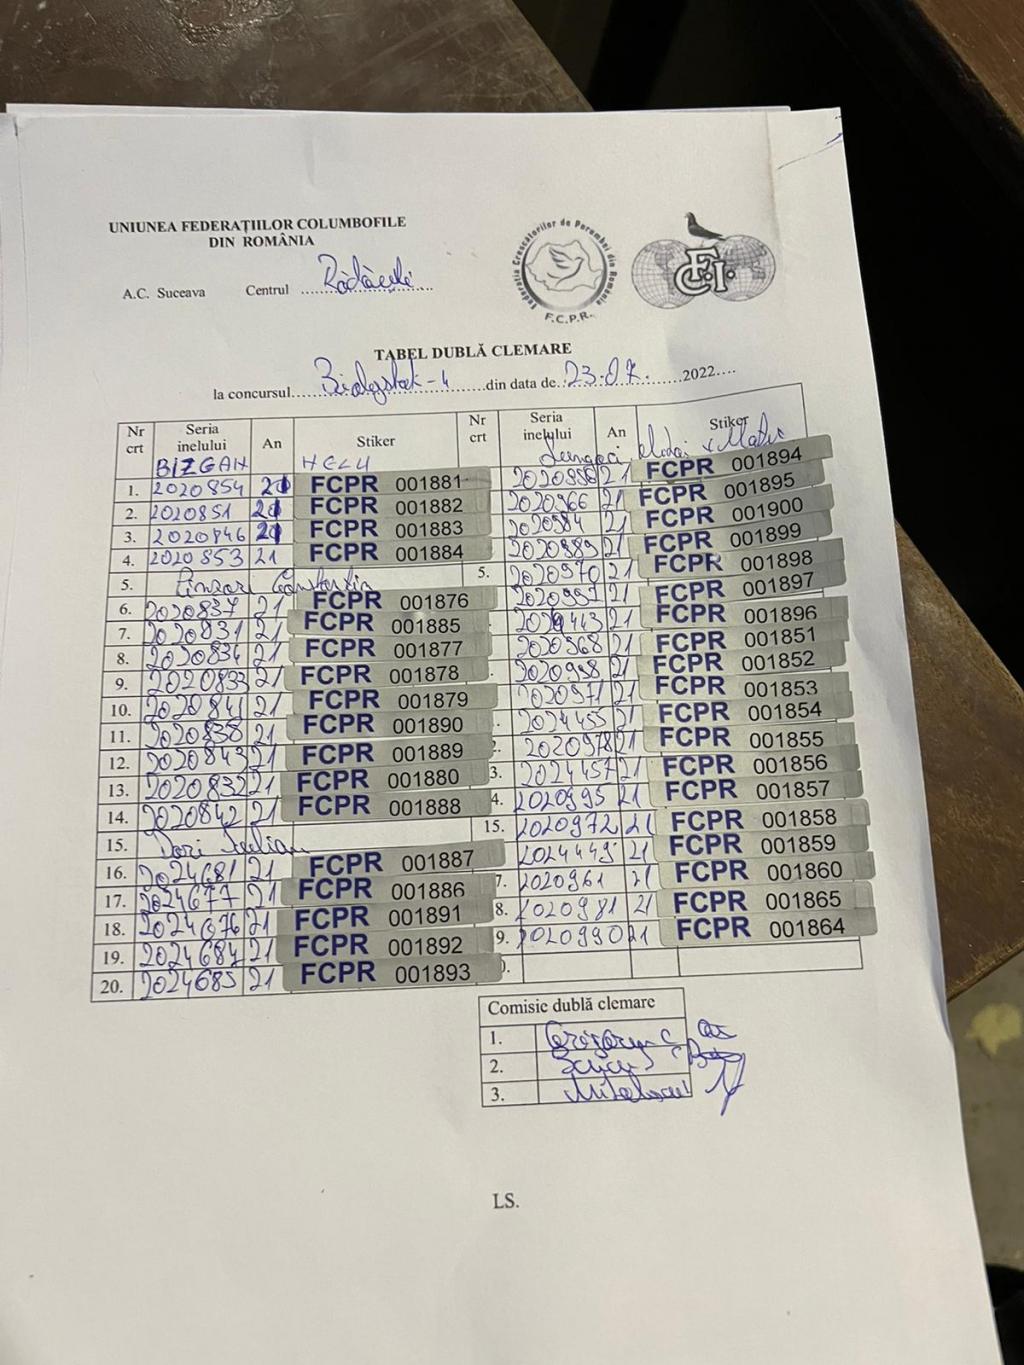 UNIUNEA FEDERAȚIILOR COLUMBOFILE
DIN ROMÂNIA
A.C. Suceava Centrul Rădăuți
Federația Crescătorilor de Porumbei din România
F.C.P.R.
F.C.I.
TABEL DUBLĂ CLEMARE
la concursul Bialystok-4 din data de 23.07. 2022
Nr crt Seria inelului An Stiker Nr crt Seria inelului An Stiker
BIZGAN HELU
1. 2020854 21 FCPR 001881
2. 2020851 21 FCPR 001882
3. 2020846 21 FCPR 001883
4. 2020853 21 FCPR 001884
5. Constantin
6. 2020837 21 FCPR 001876
7. 2020831 21 FCPR 001885
8. 2020834 21 FCPR 001877
9. 2020833 21 FCPR 001878
10. 2020841 21 FCPR 001879
11. 2020838 21 FCPR 001890
12. 2020843 21 FCPR 001889
13. 2020832 21 FCPR 001880
14. 2020842 21 FCPR 001888
15. Iulian
16. 2024681 21 FCPR 001887
17. 2024677 21 FCPR 001886
18. 2024676 21 FCPR 001891
19. 2024684 21 FCPR 001892
20. 2024685 21 FCPR 001893
21 FCPR 001894
2020966 21 FCPR 001895
2020984 21 FCPR 001900
21 FCPR 001899
5. 2020970 21 FCPR 001898
21 FCPR 001897
21 FCPR 001896
2020968 21 FCPR 001851
21 FCPR 001852
2020971 21 FCPR 001853
2024455 21 FCPR 001854
2020978 21 FCPR 001855
3. 2024457 21 FCPR 001856
4. 2020995 21 FCPR 001857
15. 2020972 21 FCPR 001858
2024449 21 FCPR 001859
7. 2020961 21 FCPR 001860
8. 2020981 21 FCPR 001865
9. 2020990 21 FCPR 001864
Comisie dublă clemare
1.
2.
3.
LS.